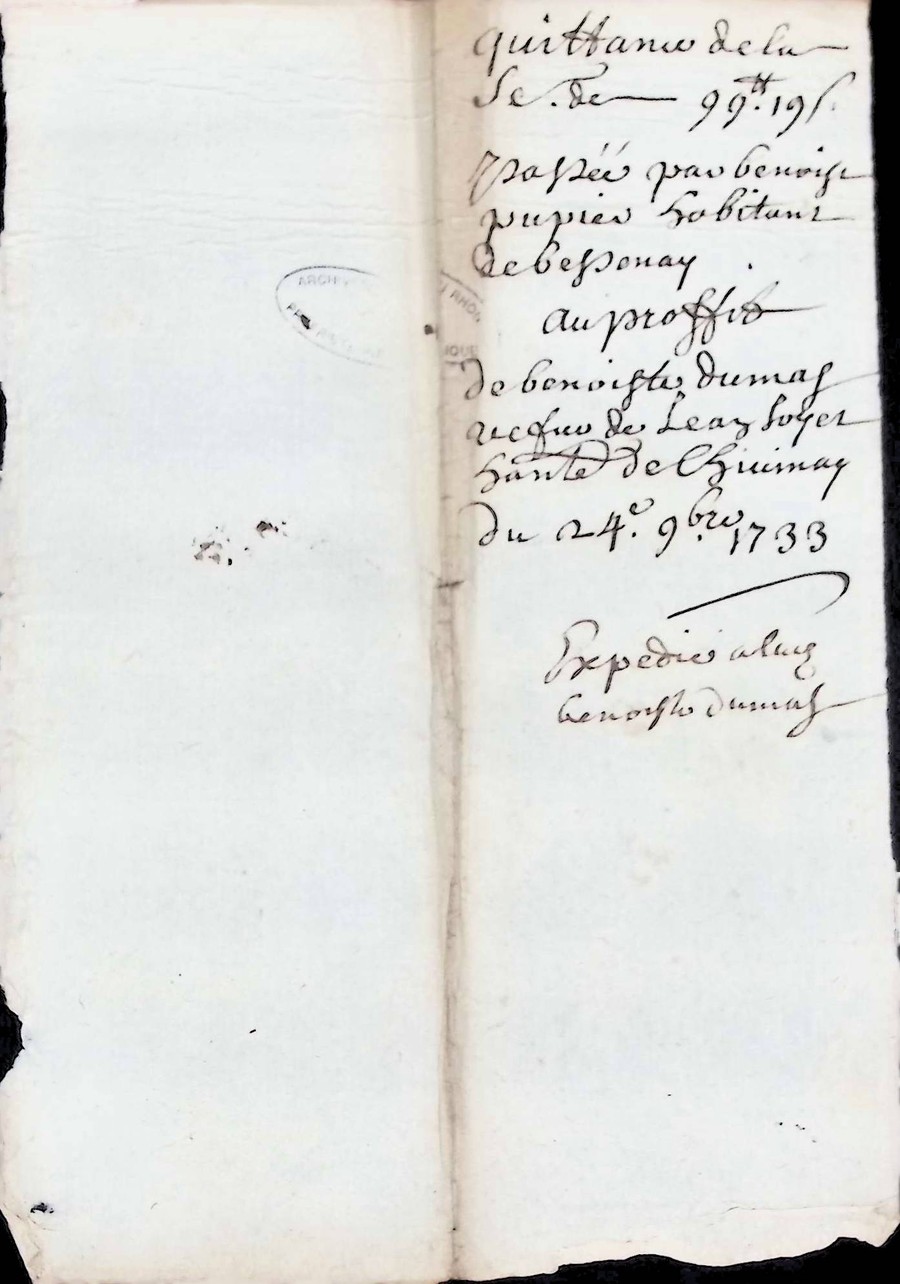 quittance de la
Se. de 99tt. 19s.
passée par benoist
pupier habitant
de bessenay
au proffit
de benoiste dumas
vefue de Jean soyer
hante de Chiuinay
du 24.e 9.bre 1733
Expedié a lad
benoiste dumas
ARCHIVES
DU RHONE